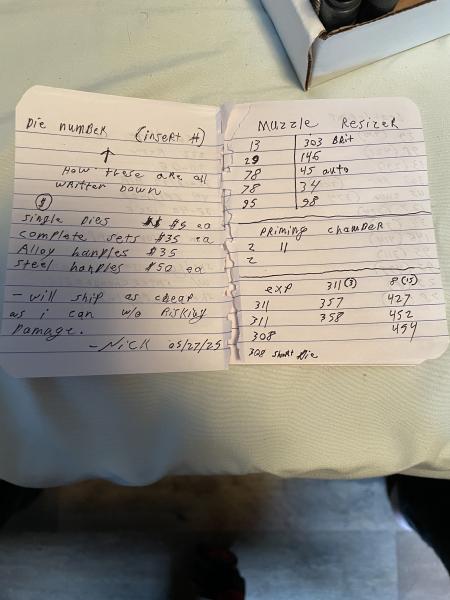 Die number (insert #)
↑
How these are all
written down
($)
single dies $5 ea
complete sets $35 ea
Alloy handles $35
steel handles $50 ea
- will ship as cheap
as i can w/o Risking
Damage.
- Nick 05/27/25
Muzzle Resizer
13 303 Brit
29 146
78 45 auto
78 34
95 98
Priming chamber
2 11
2
exp 311 (3) 8 (15)
311 357 427
311 358 452
308 454
308 short Die